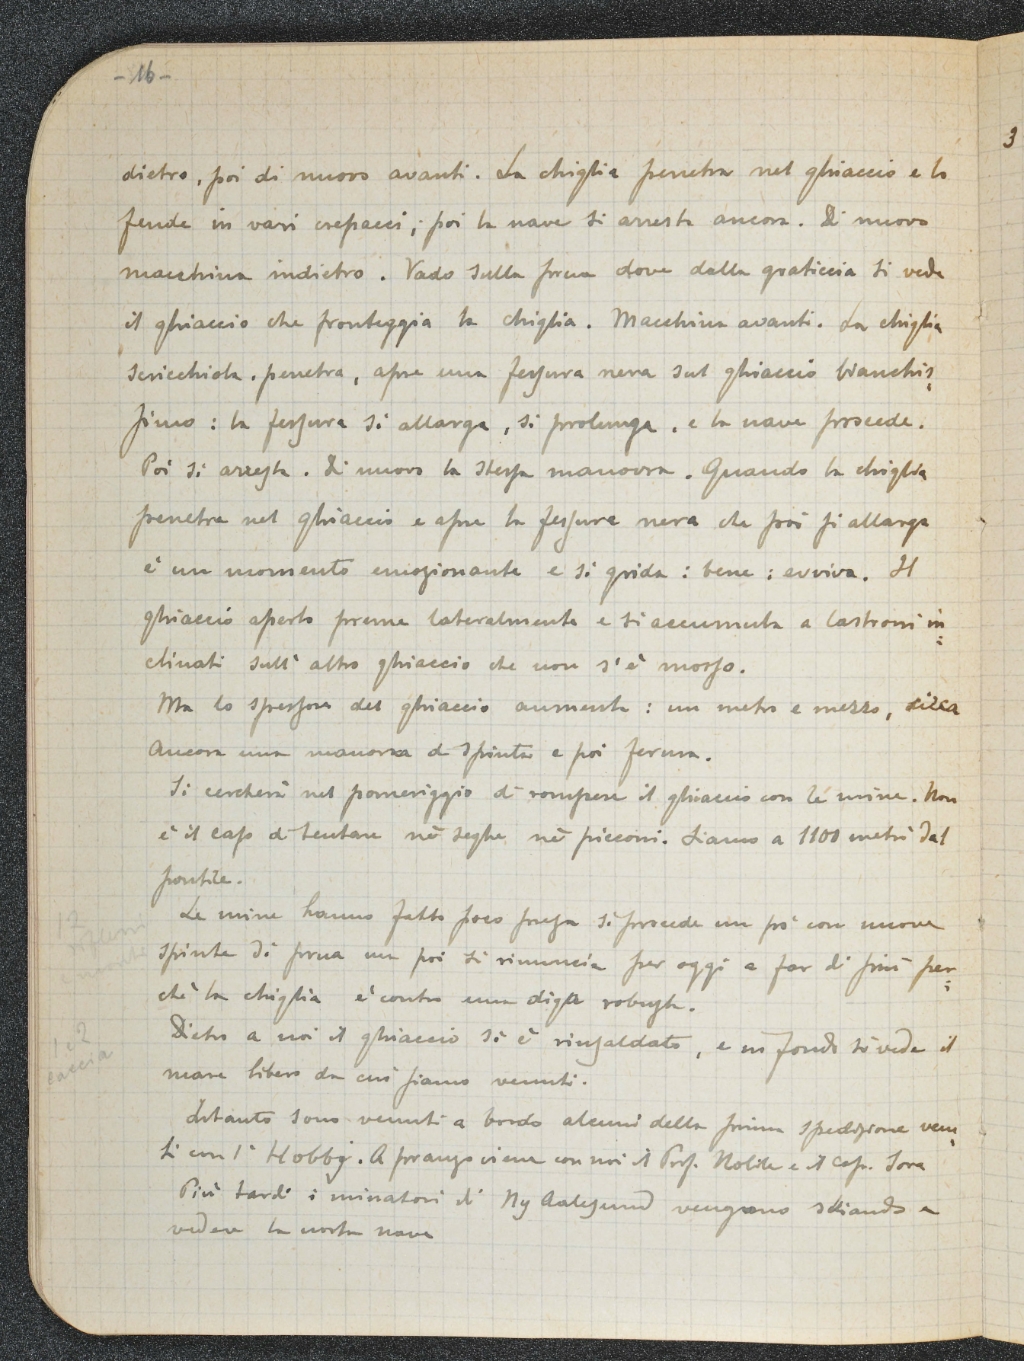 - 16 -
dietro, poi di nuovo avanti. La chiglia penetra nel ghiaccio e lo
fende in vari crepacci; poi la nave si arresta ancora. Di nuovo
macchina indietro. Vado sulla prua dove dalla graticcia si vede
il ghiaccio che fronteggia la chiglia. Macchina avanti. La chiglia
scricchiola, penetra, apre una fessura nera sul ghiaccio bianchis=
simo: la fessura si allarga, si prolunga, e la nave procede.
Poi si arresta. Di nuovo la stessa manovra. Quando la chiglia
penetra nel ghiaccio e apre la fessura nera che poi si allarga
è un momento emozionante e si grida: bene; evviva. Il
ghiaccio aperto preme lateralmente e si accumula a lastroni in=
clinati sull'altro ghiaccio che non s'è mosso.
Ma lo spessore del ghiaccio aumenta: un metro e mezzo, circa
Ancora una manovra di spinta e poi ferma.
Si cercherà nel pomeriggio di rompere il ghiaccio con le mine. Non
è il caso di tentare nè seghe nè picconi. Siamo a 1100 metri dal
pontile.
Le mine hanno fatto poco si procede un pò con nuove
spinte di prua ma poi si rinuncia per oggi a far di più per=
chè la chiglia è contro una diga robusta.
Dietro a noi il ghiaccio si è rinsaldato, e in fondo si vede il
mare libero da cui siamo venuti.
Intanto sono venuti a bordo alcuni della prima spedizione venu=
ti con l'Hobby. A pranzo viene con noi il Prof. Nobile e il Cap. Sora
Più tardi i minatori di Ny Aalesund vengono sciando a
vedere la nostra nave
caccia
3